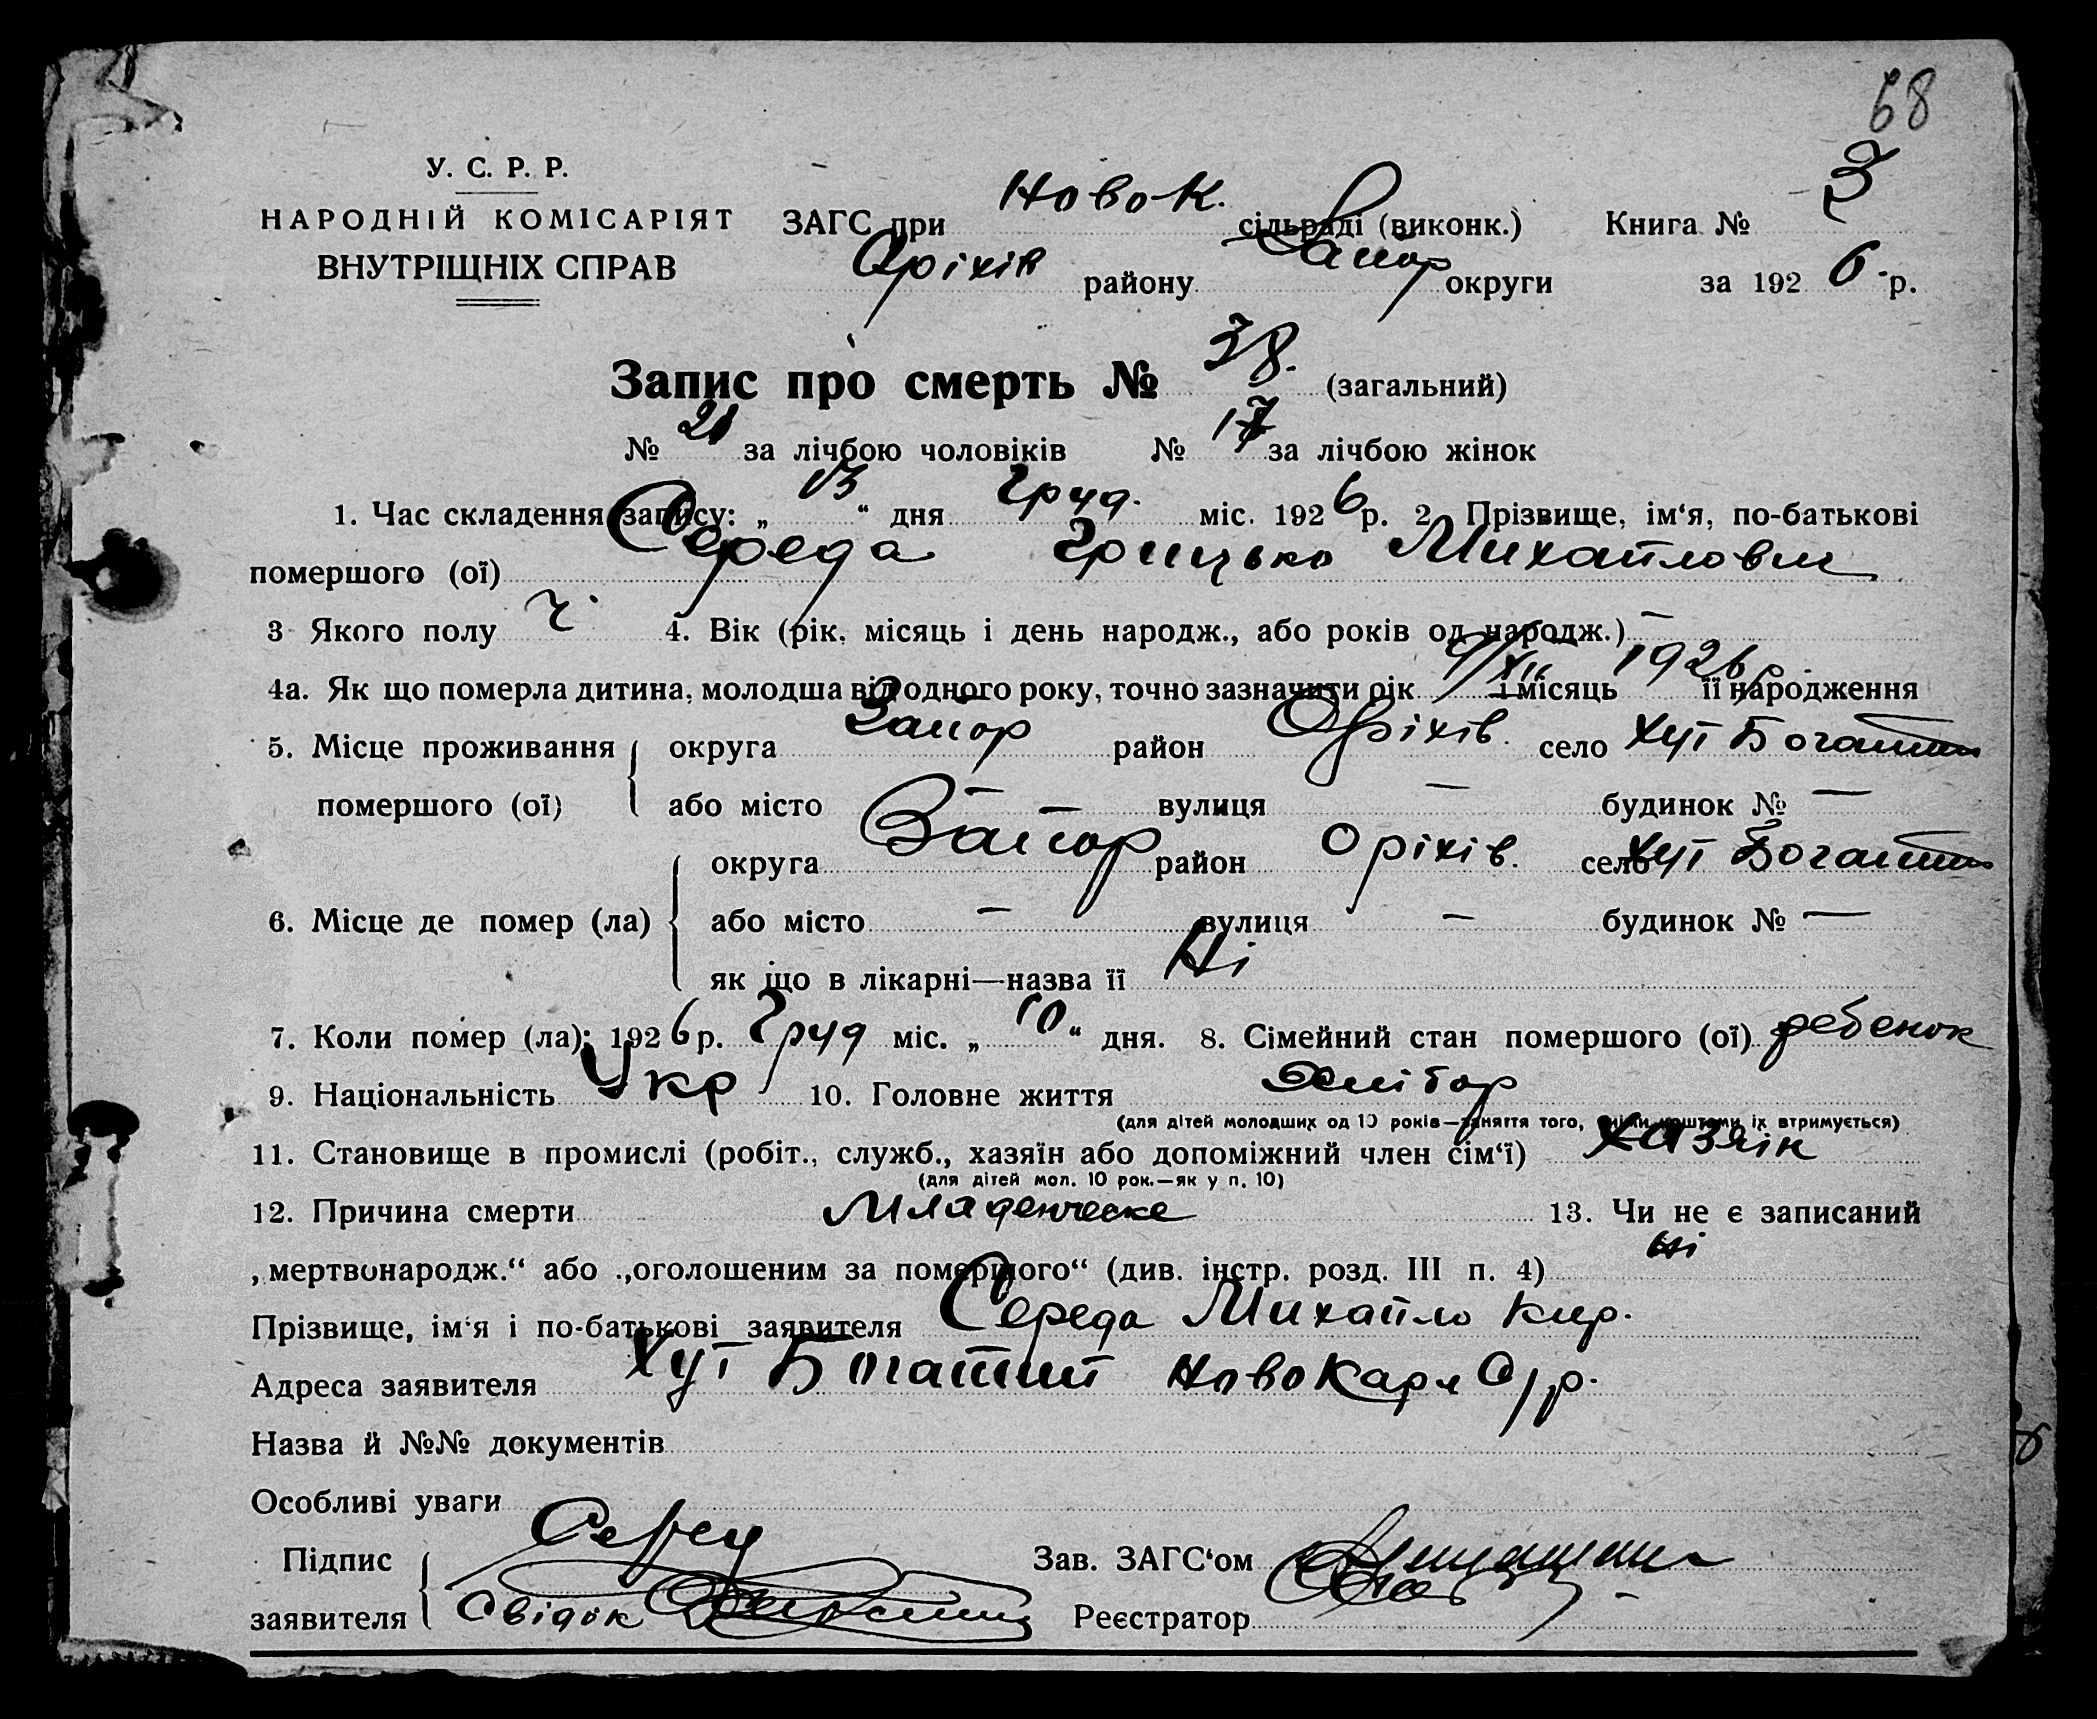 68
У. С. Р. Р.
НАРОДНІЙ КОМІСАРІЯТ
ВНУТРІЩНІХ СПРАВ
ЗАГС при Новок. сільраді (виконк.) Книга № 3
Оріхів району Запор округи за 1926 р.
Запис про смерть № 38. (загальний)
№ 21 за лічбою чоловіків № 17 за лічбою жінок
1. Час складення запису: „13“ дня Груд. міс. 1926 р. 2. Прізвище, ім‘я, по-батькові
помершого (ої) Середа Грицько Михайлович
3 Якого полу ч. 4. Вік (рік, місяць і день народж., або років од народж.) —
4а. Як що померла дитина, молодша від одного року, точно зазначити рік 9/XII і місяць 1926 р. її народження
5. Місце проживання помершого (ої) округа Запор район Оріхів. село Хут Богатий
або місто — вулиця — будинок № —
6. Місце де помер (ла) округа Запор район Оріхів. село Хут Богатий
або місто — вулиця — будинок № —
як що в лікарні—назва її Ні
7. Коли помер (ла): 1926 р. Груд міс. „10“ дня. 8. Сімейний стан помершого (ої) ребенок
9. Національність Укр 10. Головне життя Хлібор
(для дітей молодших од 10 років—заняття того, чиїми коштами їх втримується)
11. Становище в промислі (робіт., служб., хазяїн або допоміжний член сім‘ї) хазяїн
(для дітей мол. 10 рок.—як у п. 10)
12. Причина смерти Младенческе 13. Чи не є записаний
„мертвонародж.“ або „оголошеним за помершого“ (див. інстр. розд. III п. 4) Ні
Прізвище, ім‘я і по-батькові заявителя Середа Михайло Кир.
Адреса заявителя Хут Богатий НовоКарл С/р.
Назва й №№ документів
Особливі уваги
Підпис заявителя Серед
Свідок
Зав. ЗАГС‘ом
Реєстратор